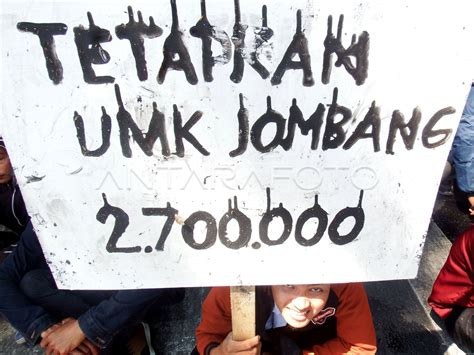 TETAPKAN
UMK JOMBANG
ANTARAFOTO
2.700.000